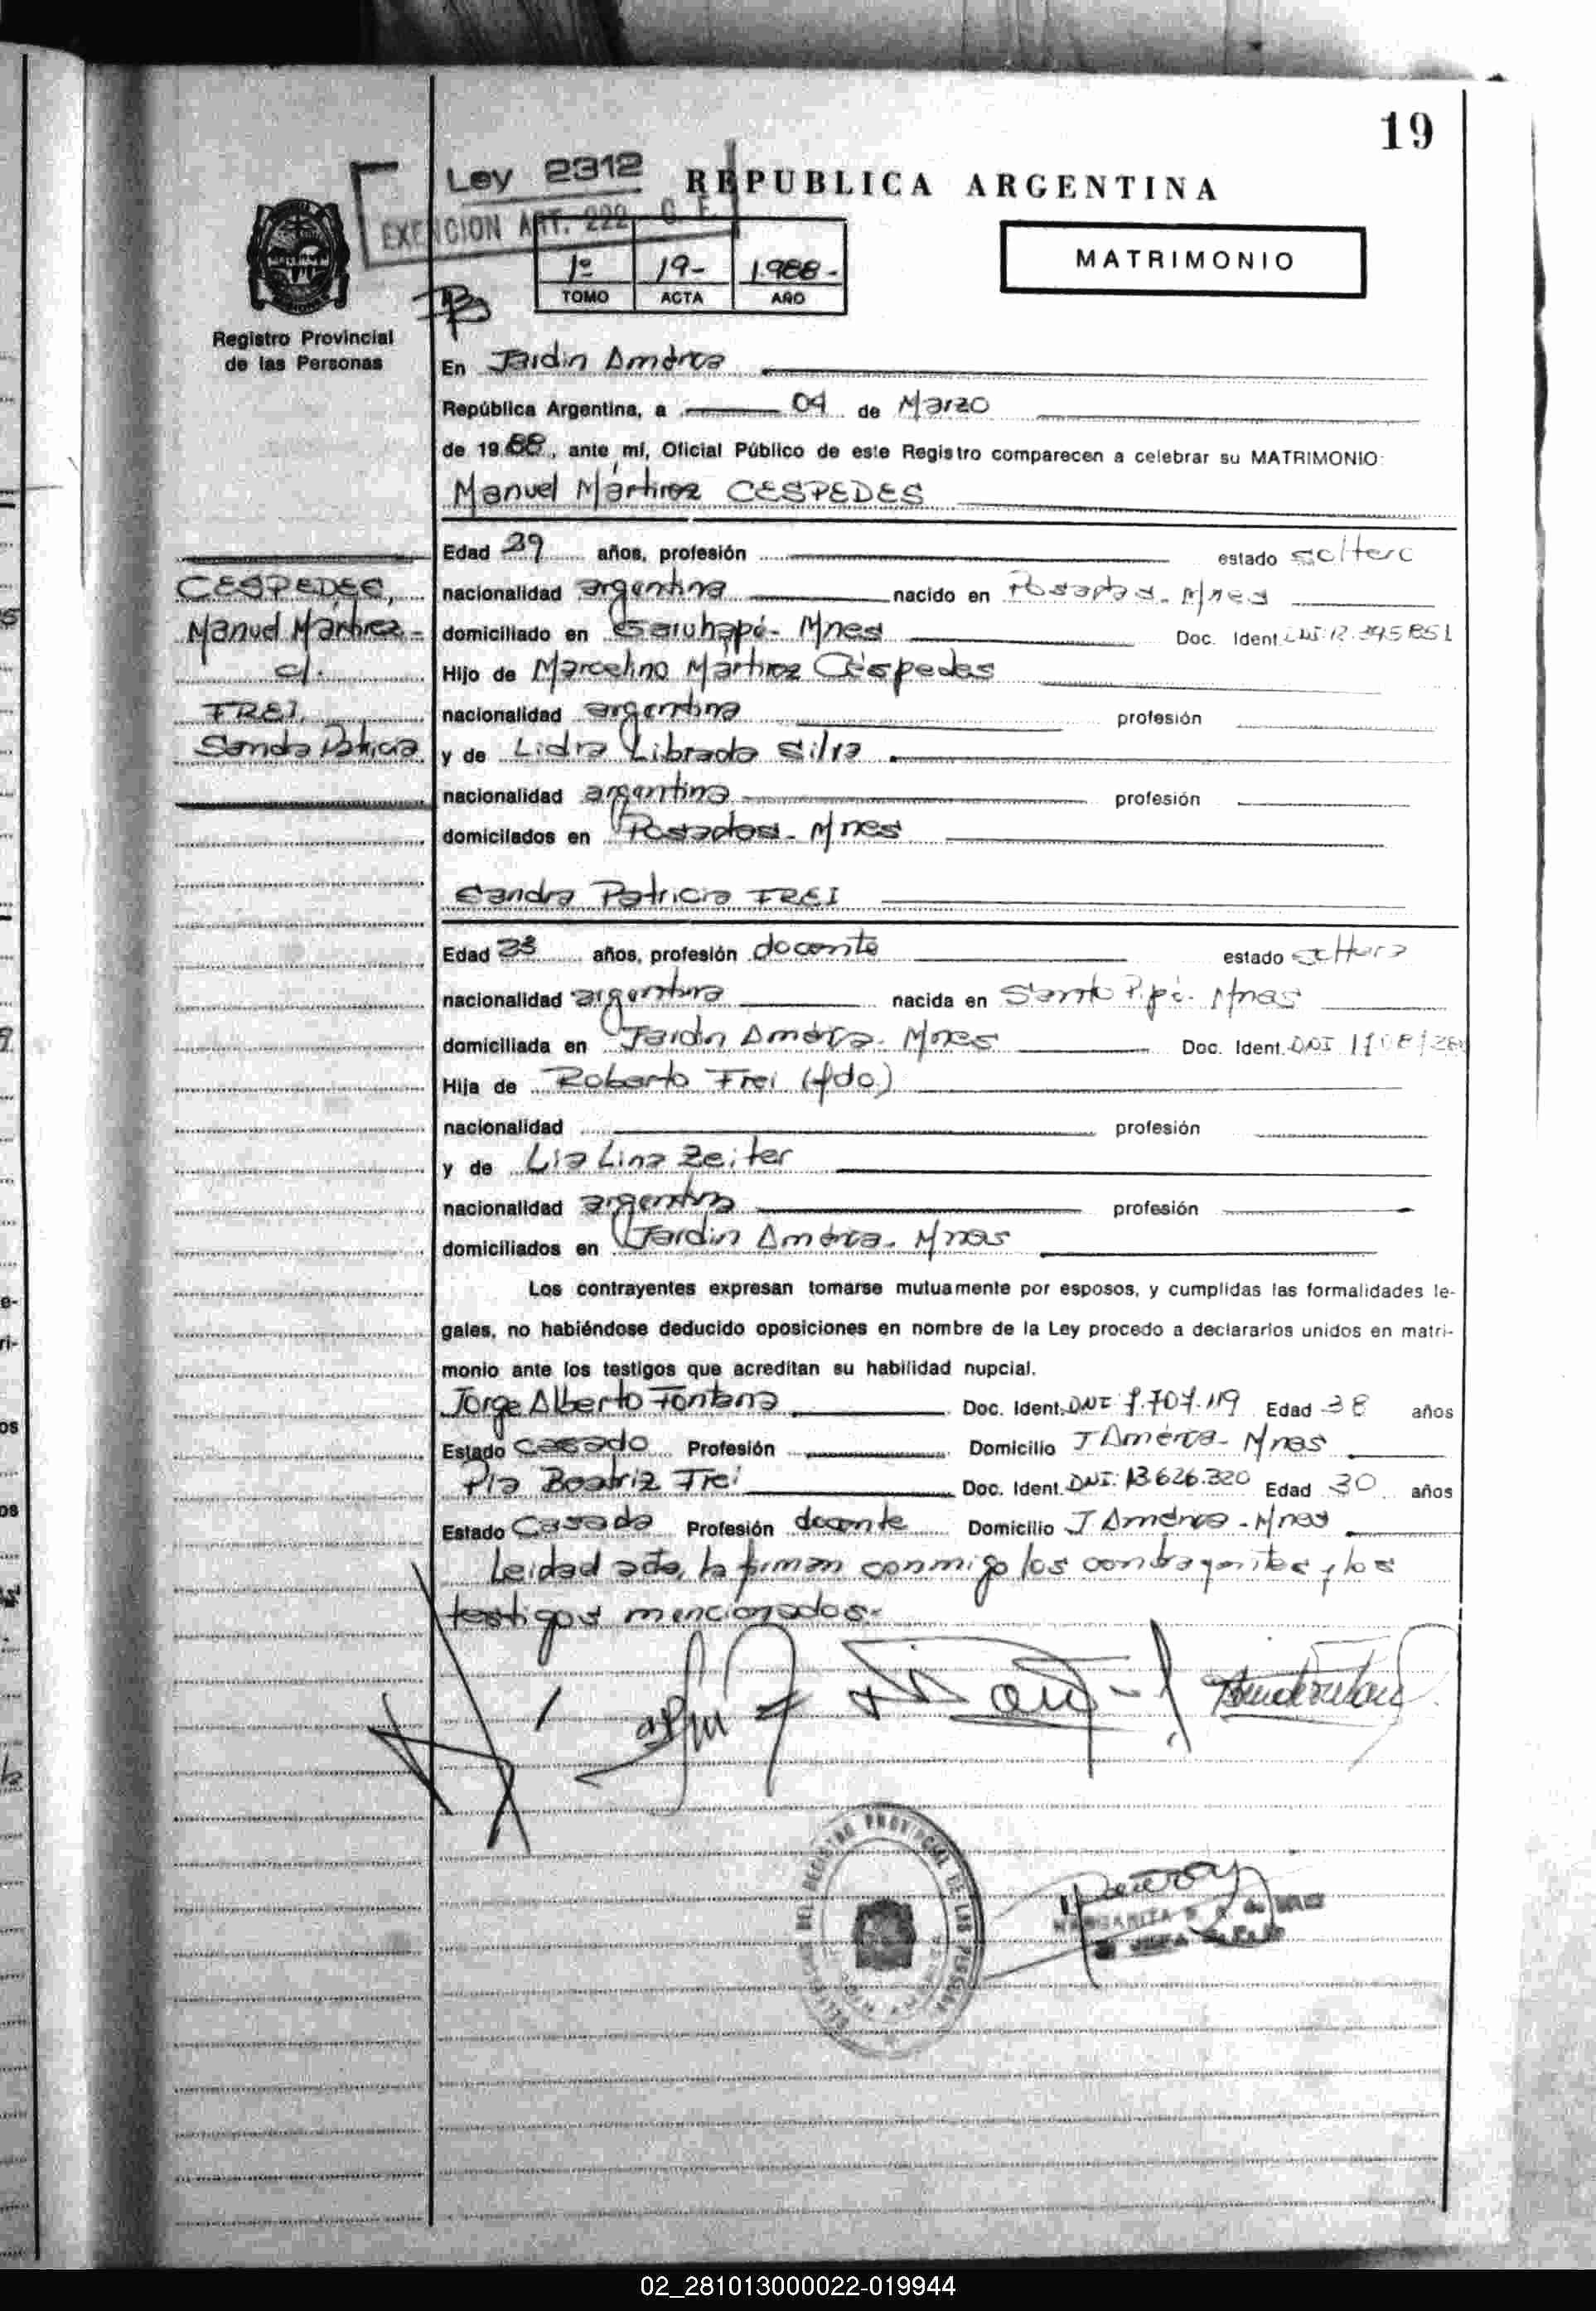 19
Ley 2312
REPUBLICA ARGENTINA
EXENCION ART. 222 C. F.
MATRIMONIO
1º 19- 1988-
TOMO ACTA AÑO
Registro Provincial
de las Personas
En Jardin América
República Argentina, a 04 de Marzo
de 19 88, ante mí, Oficial Público de este Registro comparecen a celebrar su MATRIMONIO:
Manuel Martirez CESPEDES
Edad 29 años, profesión estado soltero
nacionalidad argentina nacido en Posadas - Mnes
domiciliado en Garuhapé - Mnes Doc. Ident.
Hijo de Marcelino Martirez Céspedes
nacionalidad argentina profesión
y de Lidia Librada Silva
nacionalidad argentina profesión
domicilados en Posadas - Mnes
CESPEDES,
Manuel Martirez -
c/.
FREI,
Sandra Patricia
Sandra Patricia FREI
Edad 23 años, profesión docente estado soltera
nacionalidad argentina nacida en Santo Pipó - Mnes
domiciliada en Jardin América - Mnes Doc. Ident. DNI
Hija de Roberto Frei (fdo)
nacionalidad profesión
y de Lia Lina Zeiter
nacionalidad argentina profesión
domiciliados en Jardin América - Mnes
Los contrayentes expresan tomarse mutuamente por esposos, y cumplidas las formalidades le-
gales, no habiéndose deducido oposiciones en nombre de la Ley procedo a declararlos unidos en matri-
monio ante los testigos que acreditan su habilidad nupcial.
Jorge Alberto Fontana Doc. Ident. DNI Edad 38 años
Estado Casado Profesión Domicilio J América - Mnes
Pia Beatriz Frei Doc. Ident. DNI: 13.626.320 Edad 30 años
Estado Casada Profesión docente Domicilio J América - Mnes
Leidad acta, la firman conmigo los contrayentes y los
testigos mencionados.-
DEL REGISTRO PROVINCIAL DE LAS PERSONAS
MARGARITA
02_281013000022-019944